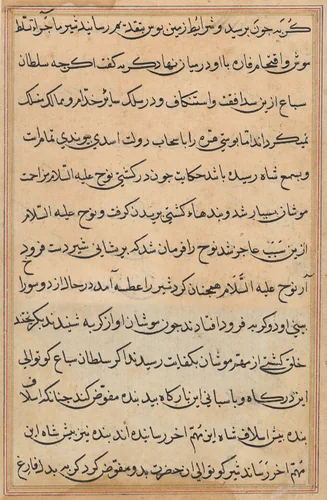 گربه چون برسید و شرایط زمین بوس بتقدیم رسانید شیر ماجرای تسلط
موش و اقتحام فاره با او در میان نهاد گربه گفت اگرچه سلطان
سباع ازین سدافقت و استنکاف و در سلک سایر خدام و ممالک منسلک
نمیگرداند اما بوشی هره را با سحاب دولت اسدی پیوندی تمامست
و بسمع شاه رسیده باشد حکایت چون در کشتی نوح علیه السلام مزاحمت
موشان بسیار شد و بندهاء کشتی بریدن گرفت و نوح علیه السلام
ازین سبب عاجز شد نوح را فرمان شد که بر پیشانی شیر دست فرود
آر نوح علیه السلام همچنان کرد شیر را عطسه آمد در حال از دو سوراخ
بینی او دو گربه فرود افتادند چون موشان آواز گربه شنیدند بگریختند
خلق کشتی از مهتر موشان بکفات رسیدند اگر سلطان سباع کوتوالی
این درگاه و پاسبانی این بارگاه ببنده مفوض کند چنانکه اسلاف
بنده پیش اسلاف شاه این مهم آخر رسانیده اند بنده نیز پیش شاه این
مهم آخر رساند شیر کوتوالی آن حضرت بدو مفوض کرد گربه بدل فارغ